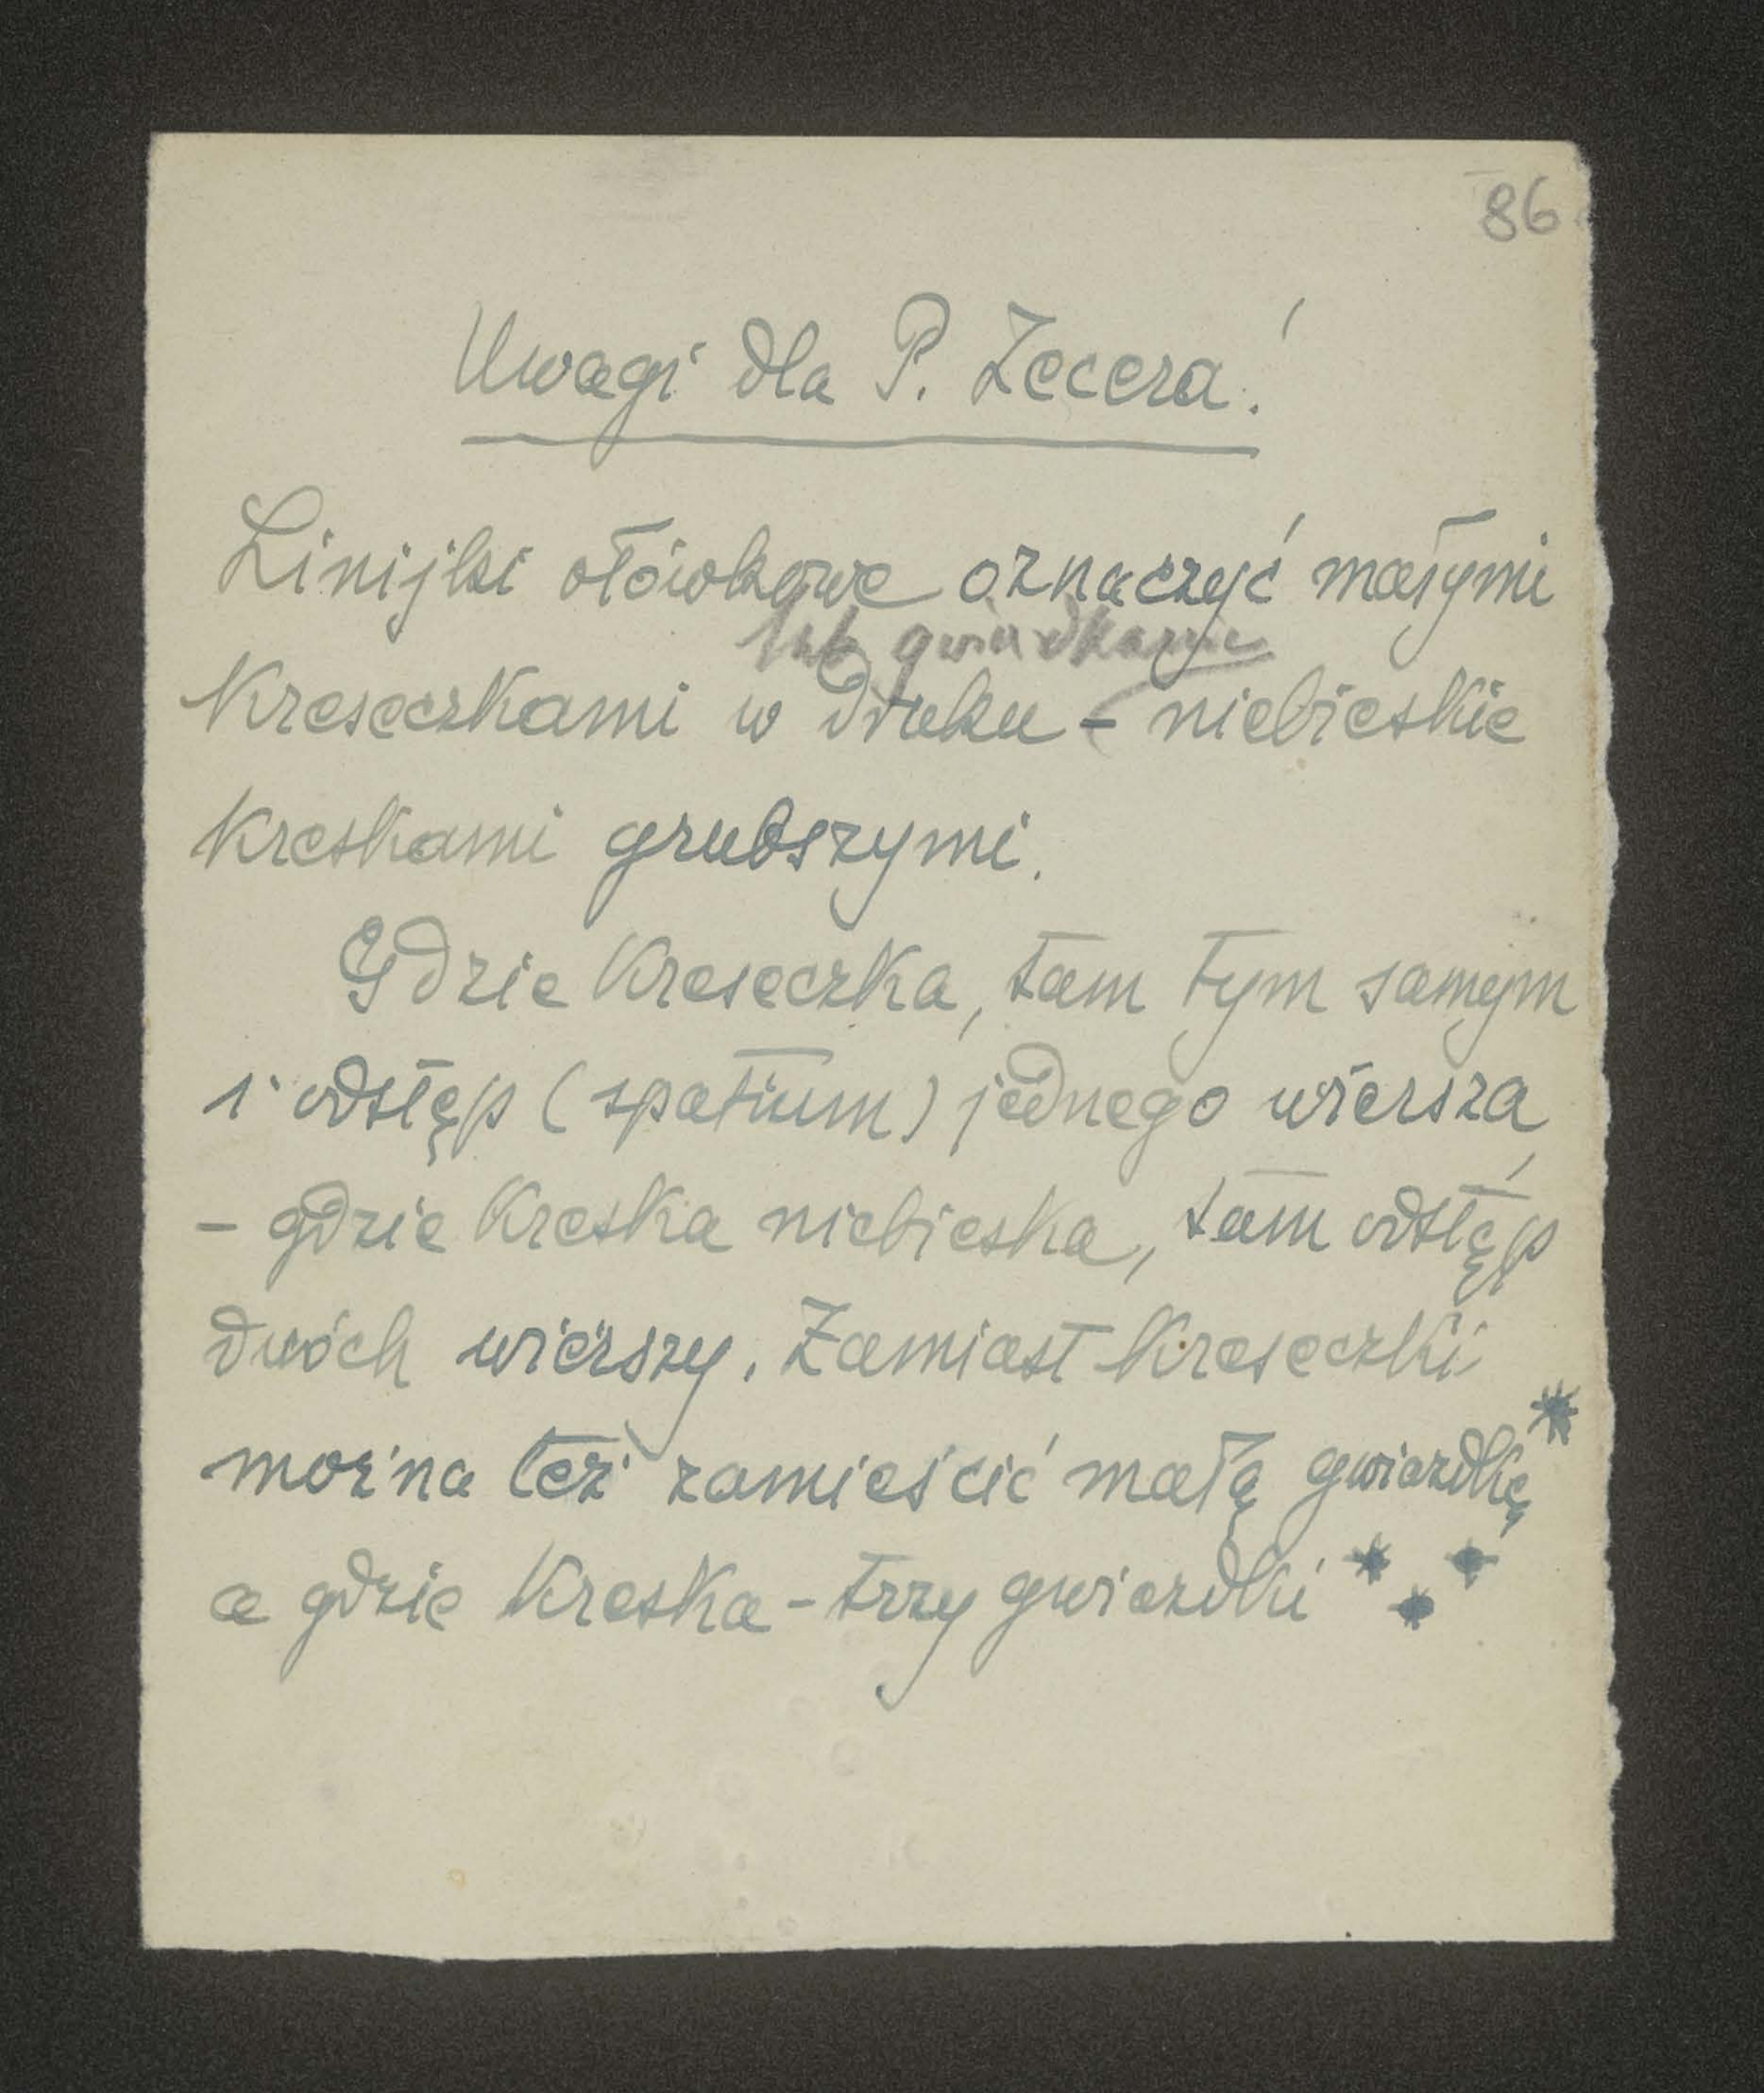 86
Uwagi dla P. Zecera!
Linijki ołówkowe oznaczyć małymi
lub gwiazdkami
Kreseczkami w druku - niebieskie
Kreskami grubszymi.
Gdzie Kreseczka, tam tym samym
i odstęp (spatium) jednego wiersza,
- gdzie Kreska niebieska, tam odstęp
dwóch wierszy. Zamiast Kreseczki
można też zamieścić małą gwiazdkę *
a gdzie Kreska - trzy gwiazdki * * *